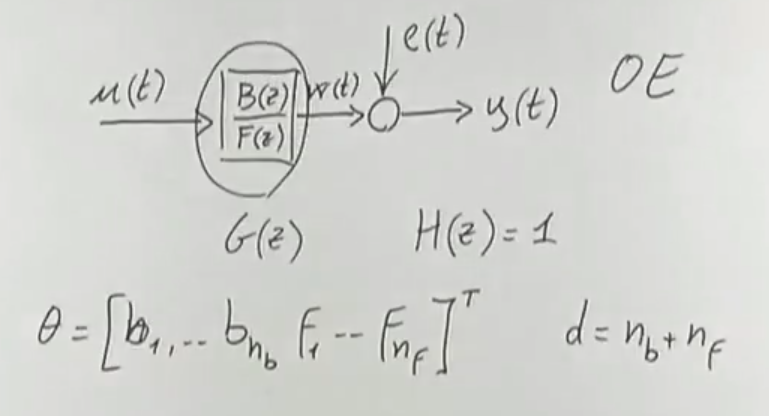 e(t)
OE
u(t)
B(z)
F(z)
w(t)
y(t)
G(z)
H(z) = 1
θ = [b₁, .. b_{n_b} f₁ -- f_{n_f}]ᵀ
d = n_b + n_f